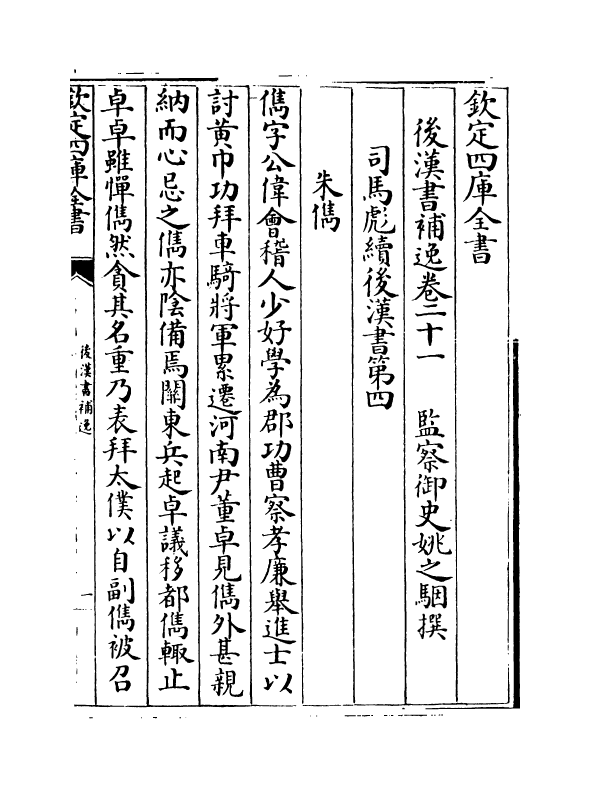 欽定四庫全書
後漢書補逸卷二十一　監察御史姚之駰撰
司馬彪續後漢書第四
朱儁
儁字公偉會稽人少好學為郡功曹察孝廉舉進士以
討黃巾功拜車騎將軍累遷河南尹董卓見儁外甚親
納而心忌之儁亦陰備焉關東兵起卓議移都儁輙止
卓卓雖憚儁然貪其名重乃表拜太僕以自副儁被召
欽定四庫全書
後漢書補逸
一